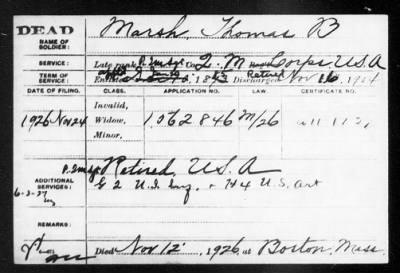 DEAD
NAME OF SOLDIER: Marsh, Thomas B
SERVICE: Late rank P. Sergt Co. Q. M Regt Corps, U.S.A
TERM OF SERVICE: Enlisted 18 Discharged Retired Nov 16, 1924
DATE OF FILING. CLASS. APPLICATION NO. LAW. CERTIFICATE NO.
Invalid,
1926 Nov 24 Widow, 1,562,846 M/26
Minor,
Retired, U.S.A
ADDITIONAL SERVICES: G 2 U.S. Inf. + H 4 U.S. Art
6-3-27
REMARKS:
Died Nov 12, 1926, at Boston, Mass.